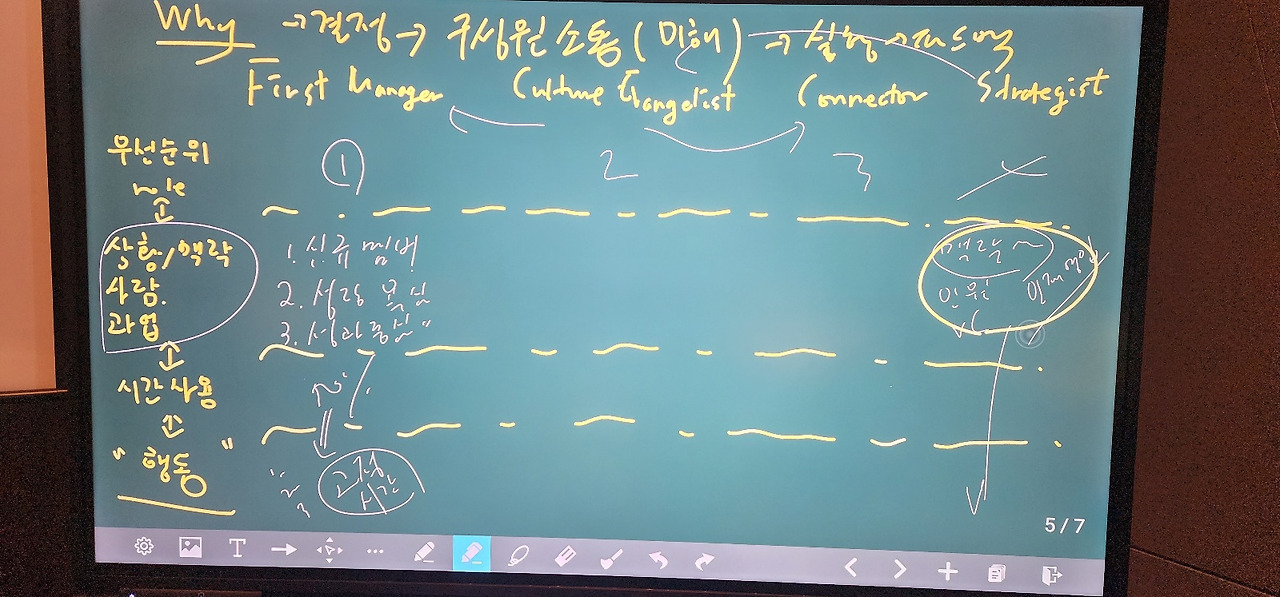 Why → 결정 → 구성원 소통 ( 이해 ) → 실행 →
First Manager Culture Evangelist Connector Strategist
우선순위 ① 2 3
role
상황/맥락
사람.
과업
1. 신규 멤버
2. 성장
3. 성과
맥락 ~
인원
시간사용
%
" 행동 "
고정
시간
2
3
5 / 7
T